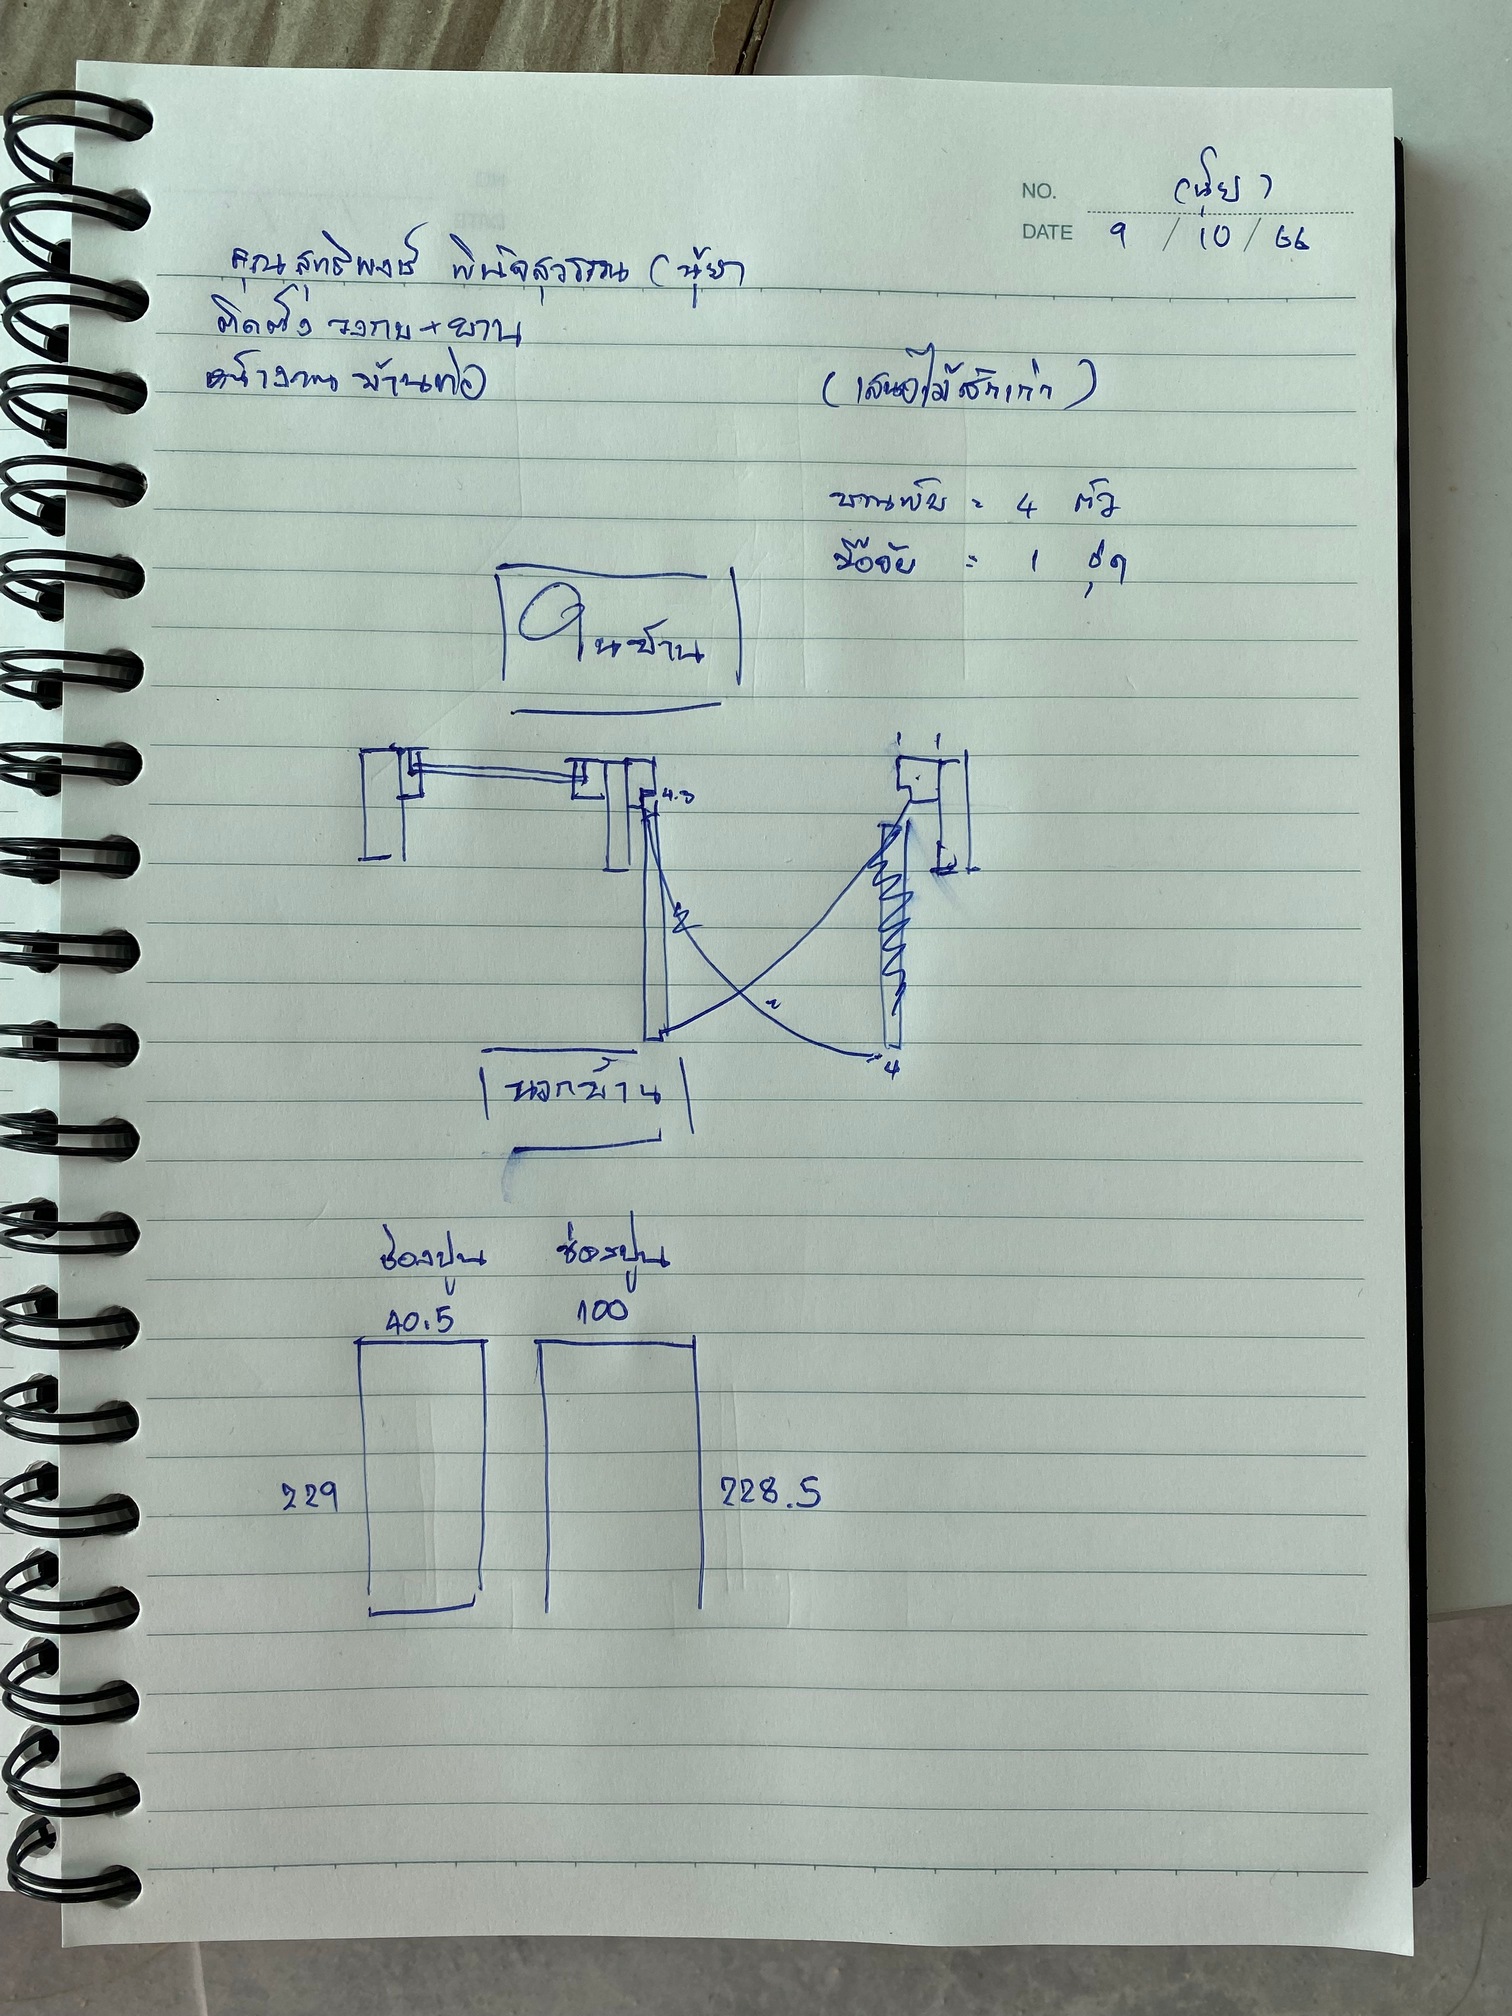 NO. (นุ้ย)
DATE 9 / 10 / 66
คุณสุทธิพงษ์ พินิจสุวรรณ (นุ้ย)
ติดตั้ง วงกบ + บาน
หน้างาน บ้านพ่อ
(เสนอไม้สักเก่า)
บานพับ = 4 ตัว
มือจับ = 1 ชุด
ในบ้าน
4
นอกบ้าน
ช่องปูน ช่องปูน
40.5 100
229 228.5